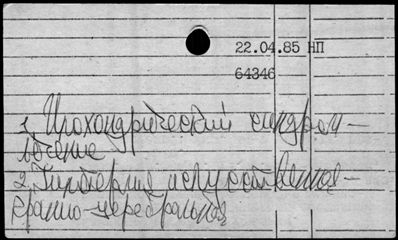 22.04.85 НП
64346
1. Ипохондрический синдром –
лечение
2. Гипотермия искусственная –
кранио-церебральная